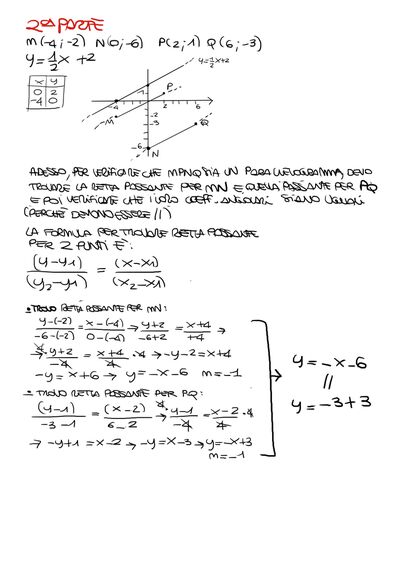 2ª PARTE
M(-4;-2) N(0;-6) P(2;1) Q(6;-3)
y=1/2x+2
x y
0 2
-4 0
y=1/2x+2
P
-4
-1
6
-M
-2
-3
Q
-6
N
ADESSO, PER VERIFICARE CHE MPNQ SIA UN PARALLELOGRAMMA, DEVO
TROVARE LA RETTA PASSANTE PER MN E QUELLA PASSANTE PER PQ
E POI VERIFICARE CHE I LORO COEFF. ANGOLARI SIANO UGUALI
(PERCHÈ DEVONO ESSERE //)
LA FORMULA PER TROVARE RETTA PASSANTE
PER 2 PUNTI È:
(y-y1)/(y2-y1) = (x-x1)/(x2-x1)
• TROVO RETTA PASSANTE PER MN:
y-(-2)/-6-(-2) = x-(-4)/0-(-4) → y+2/-6+2 = x+4/+4 →
→ 4·y+2/-4 = x+4/4·4 → -y-2=x+4
-y=x+6 → y=-x-6 m=-1
- TROVO RETTA PASSANTE PER PQ:
(y-1)/-3-1 = (x-2)/6-2 → 4·y-1/-4 = x-2/4·4
→ -y+1=x-2 → -y=x-3 → y=-x+3
m=-1
y=-x-6
//
y=-3+3